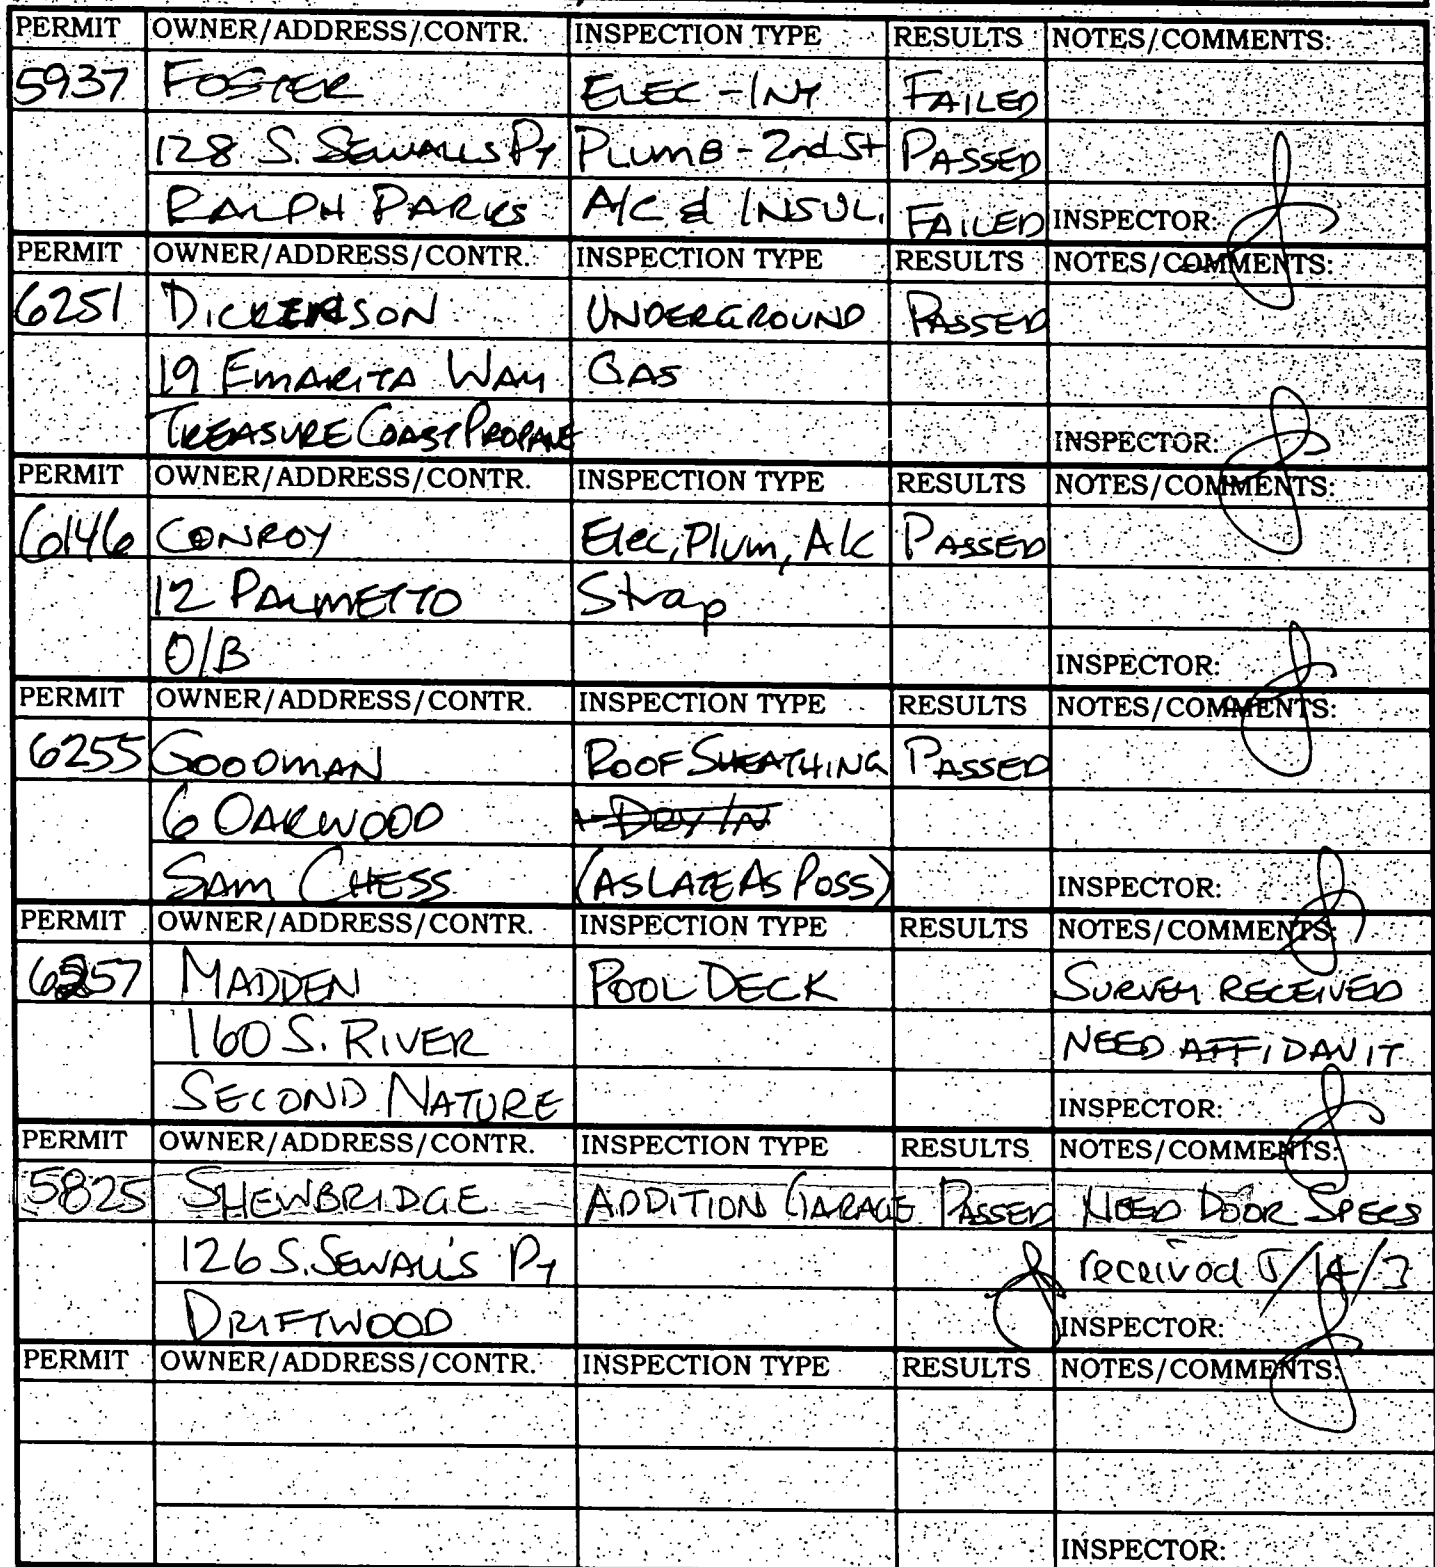 PERMIT OWNER/ADDRESS/CONTR. INSPECTION TYPE RESULTS NOTES/COMMENTS:
5937 FOSTER ELEC - INT FAILED
128 S. SEWALLS PT PLUMB - 2nd St PASSED
RALPH PARKS A/C & INSUL. FAILED INSPECTOR:
PERMIT OWNER/ADDRESS/CONTR. INSPECTION TYPE RESULTS NOTES/COMMENTS:
6251 DICKERSON UNDERGROUND PASSED
19 EMARITA WAY GAS
TREASURE COAST PROPANE INSPECTOR:
PERMIT OWNER/ADDRESS/CONTR. INSPECTION TYPE RESULTS NOTES/COMMENTS:
6146 CONROY Elec, Plum, A/C PASSED
12 PALMETTO Strap
O/B INSPECTOR:
PERMIT OWNER/ADDRESS/CONTR. INSPECTION TYPE RESULTS NOTES/COMMENTS:
6255 GOODMAN ROOF SHEATHING PASSED
6 OAKWOOD DRY IN
SAM CHESS (AS LATE AS POSS) INSPECTOR:
PERMIT OWNER/ADDRESS/CONTR. INSPECTION TYPE RESULTS NOTES/COMMENTS:
6257 MADDEN POOL DECK SURVEY RECEIVED
160 S. RIVER NEED AFFIDAVIT
SECOND NATURE INSPECTOR:
PERMIT OWNER/ADDRESS/CONTR. INSPECTION TYPE RESULTS NOTES/COMMENTS:
5825 SHEWBRIDGE ADDITION GARAGE PASSED NEED DOOR SPECS
126 S. SEWALL'S PT received 5/14/3
DRIFTWOOD INSPECTOR:
PERMIT OWNER/ADDRESS/CONTR. INSPECTION TYPE RESULTS NOTES/COMMENTS:
INSPECTOR: